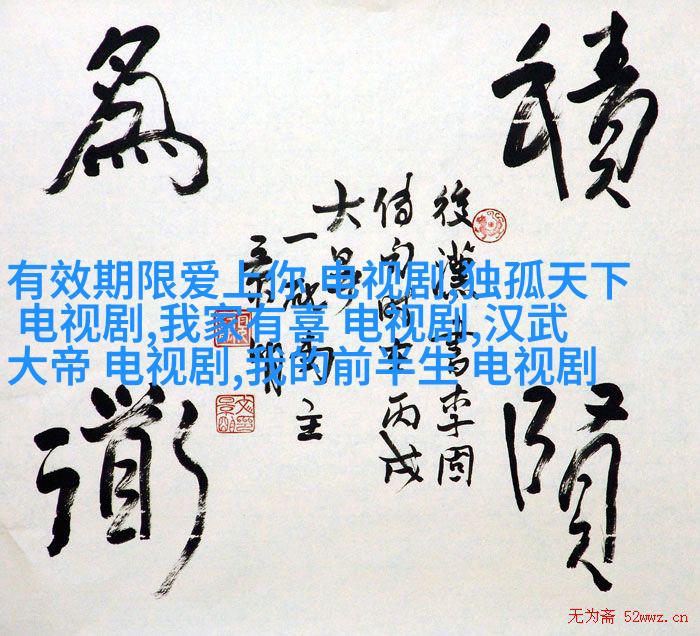 積賢
為衜
後漢書李固
傳句時在丙戌
大暑
有效期限爱上你 电视剧,独孤天下
电视剧,我家有喜 电视剧,汉武
大帝 电视剧,我的前半生 电视剧
无为斋 52wwz.cn